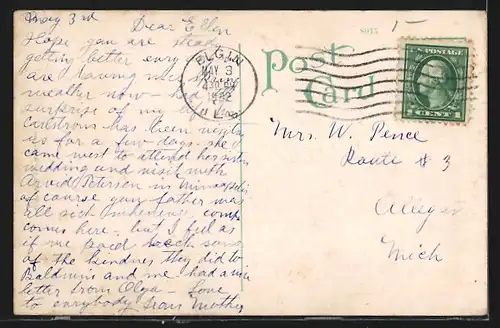 May 3rd
Dear Ellen
Hope you are
getting better every
are having nice
weather now - had
surprise of my
has been
us for a few days. she
came west to attend her
wedding and visit with
Arvid Petersen in Minneapolis
of course your father was
all such
comes here - but I feel as
if we paid back some
of the kindness they did to
Baldwins and me. I had a nice
letter from Olga - Love
to everybody from Mother
8015
1-
Post
Card
ELGIN
MAY 3
430 PM
ILL.
1 CENT 1
Mrs. W. Pence
Route # 3
Allegan
Mich